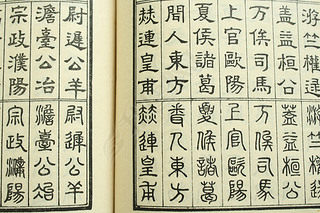 游竺權逯
蓋益桓公
万俟司馬
上官歐陽
夏侯諸葛
聞人東方
赫連皇甫
尉遲公羊
澹臺公冶
宗政濮陽
游竺權逯
蓋益桓公
万俟司馬
上官歐陽
夏侯諸葛
聞人東方
赫連皇甫
尉遲公羊
澹臺公冶
宗政濮陽